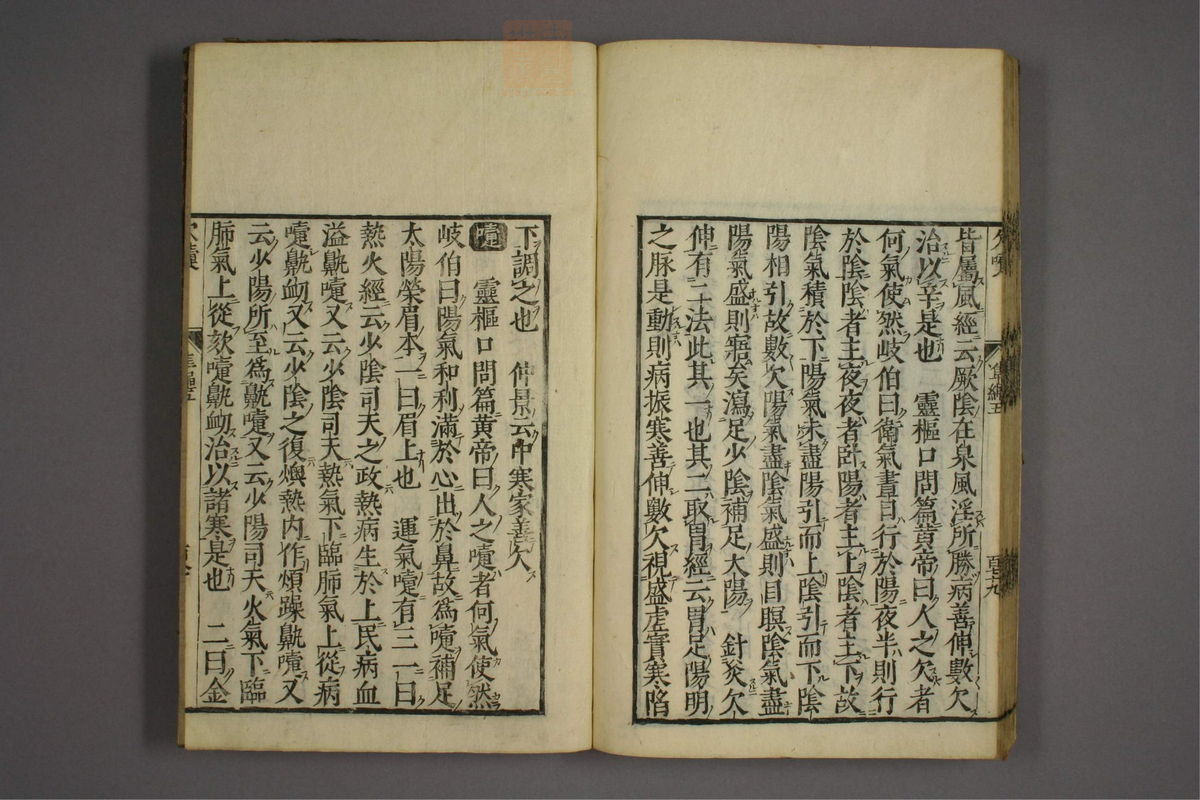 皆屬風經云厥陰在泉風淫所勝病善伸數欠
治以辛是也　靈樞口問篇黃帝曰人之欠者
何氣使然岐伯曰衛氣晝日行於陽夜半則行
於陰陰者主夜夜者卧陽者主上陰者主下故
陰氣積於下陽氣未盡陽引而上陰引而下陰
陽相引故數欠陽氣盡陰氣盛則目瞑陰氣盡
陽氣盛則寤矣瀉足少陰補足大陽　針灸欠
伸有二法此其一也其二取胃經云胃足陽明
之脉是動則病振寒善伸數欠視盛虛實寒陷
下調之也　仲景云中寒家善欠
嚏　靈樞口問篇黃帝曰人之嚏者何氣使然
岐伯曰陽氣和利滿於心出於鼻故爲嚏補足
太陽榮眉本一曰眉上也　運氣嚏有三一曰
熱火經云少陰司天之政熱病生於上民病血
溢鼽嚏又云少陰司天熱氣下臨肺氣上從病
嚏鼽衂又云少陰之復燠熱內作煩躁鼽嚏又
云少陽所至爲鼽嚏又云少陽司天火氣下臨
肺氣上從欬嚏鼽衂治以諸寒是也　二曰金